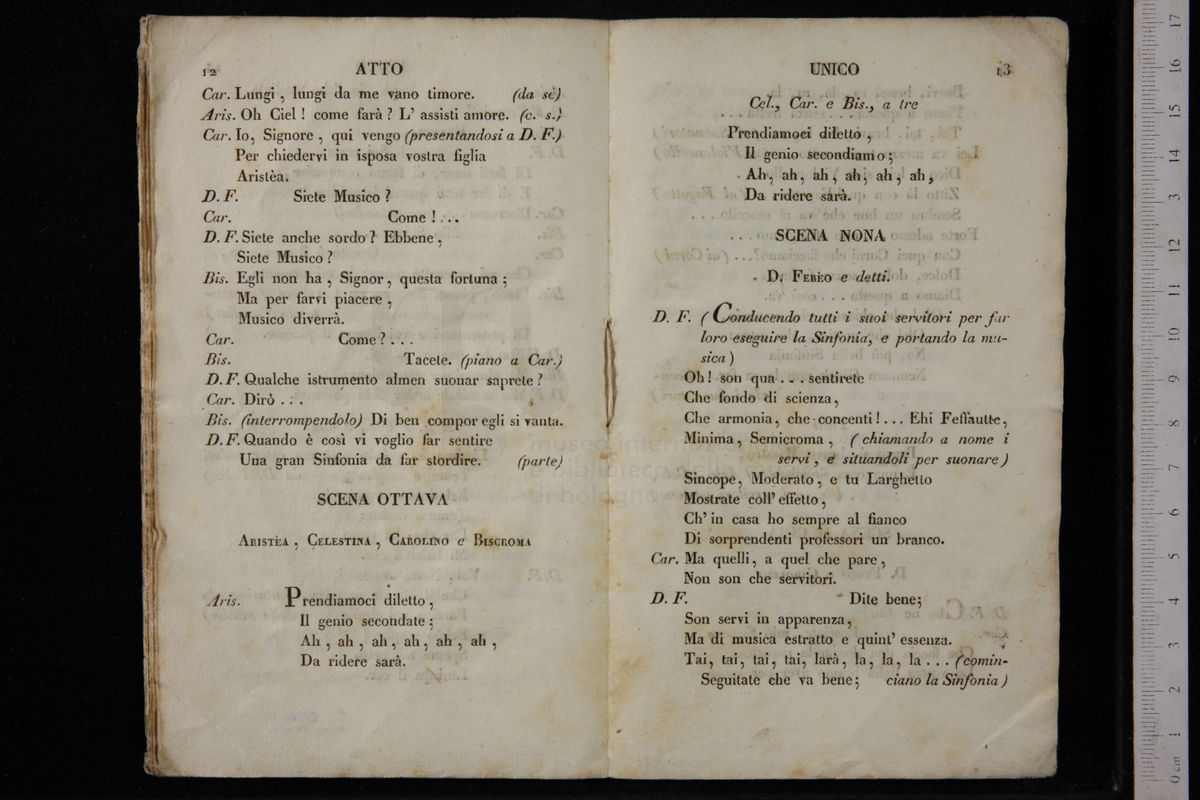 12 ATTO
Car. Lungi , lungi da me vano timore. (da sè)
Aris. Oh Ciel ! come farà ? L' assisti amore. (c. s.)
Car. Io, Signore , qui vengo (presentandosi a D. F.)
Per chiedervi in isposa vostra figlia
Aristèa.
D. F. Siete Musico ?
Car. Come ! ...
D. F. Siete anche sordo ? Ebbene ,
Siete Musico ?
Bis. Egli non ha , Signor , questa fortuna ;
Ma per farvi piacere ,
Musico diverrà.
Car. Come ? . . .
Bis. Tacete. (piano a Car.)
D. F. Qualche istrumento almen suonar saprete ?
Car. Dirò . . .
Bis. (interrompendolo) Di ben compor egli si vanta.
D. F. Quando è così vi voglio far sentire
Una gran Sinfonia da far stordire. (parte)
SCENA OTTAVA
ARISTÈA , CELESTINA , CAROLINO e BISCROMA
Aris. Prendiamoci diletto ,
Il genio secondate ;
Ah , ah , ah , ah , ah , ah ,
Da ridere sarà.
UNICO 13
Cel., Car. e Bis., a tre
Prendiamoci diletto ,
Il genio secondiamo ;
Ah, ah, ah, ah, ah, ah,
Da ridere sarà.
SCENA NONA
D. FEBÈO e detti.
D. F. (Conducendo tutti i suoi servitori per far
loro eseguire la Sinfonia, e portando la mu-
sica )
Oh ! son qua . . . sentirete
Che fondo di scienza ,
Che armonia , che concenti ! ... Ehi Feffautte,
Minima , Semicroma , ( chiamando a nome i
servi , e situandoli per suonare )
Sincope, Moderato , e tu Larghetto
Mostrate coll' effetto ,
Ch' in casa ho sempre al fianco
Di sorprendenti professori un branco.
Car. Ma quelli , a quel che pare ,
Non son che servitori.
D. F. Dite bene ;
Son servi in apparenza ,
Ma di musica estratto e quint' essenza.
Tai, tai, tai, tai, larà, la, la, la . . . (comin-
Seguitate che va bene ; ciano la Sinfonia )
museo inter
biblioteca
di bologna
0 cm 1 2 3 4 5 6 7 8 9 10 11 12 13 14 15 16 17